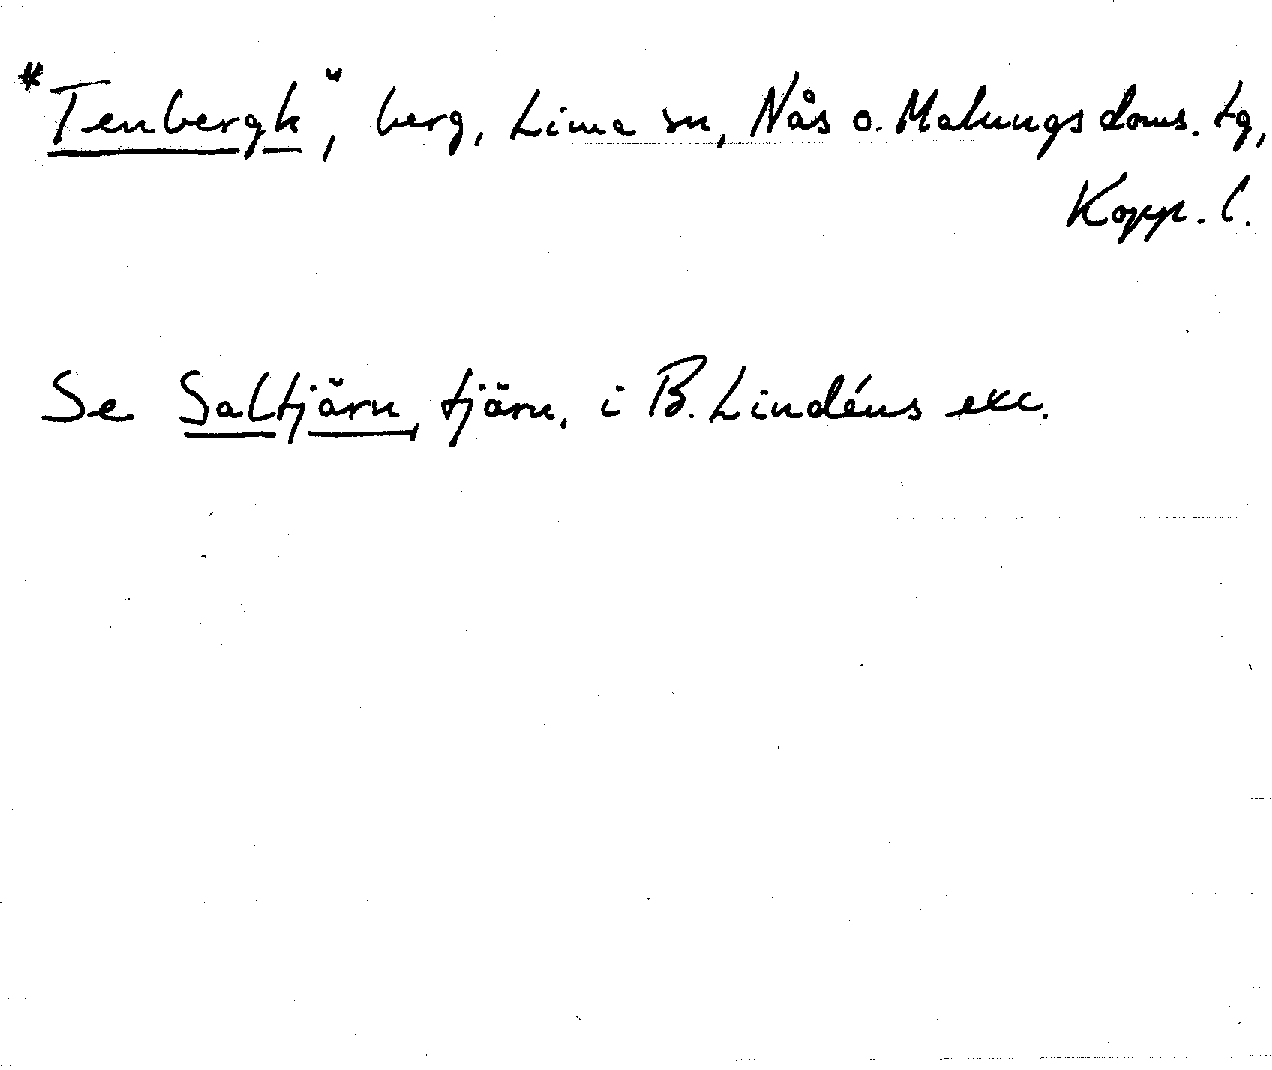 *"Tenbergk", berg, Lima sn, Nås o. Malungs doms. tg,
Kopp. l.
Se Saltjärn, tjärn, i B. Lindéns exc.